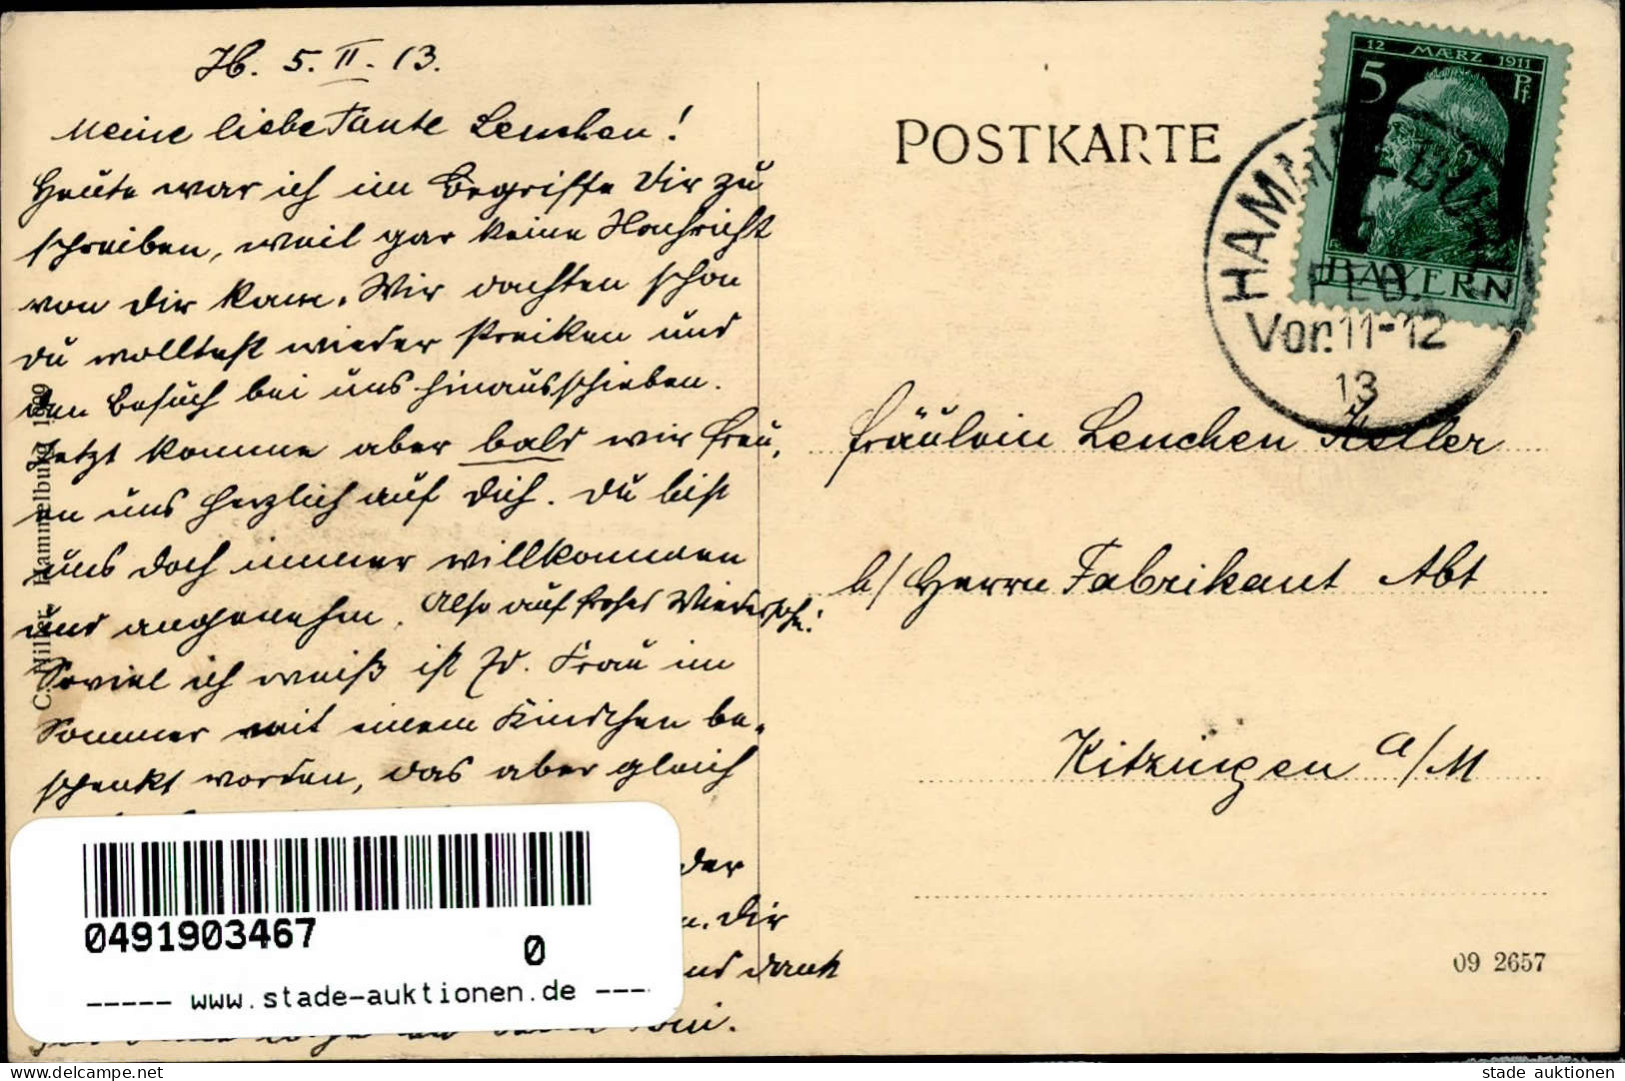 H. 5. II. 13.
Meine liebe Tante Lenchen!
Heute war ich im Begriffe Dir zu
schreiben, weil gar keine Nachricht
von Dir kam. Wir dachten schon
Du wolltest wieder streiken und
den Besuch bei uns hinausschieben.
Jetzt komme aber bald wir freu,
en uns herzlich auf Dich. Du bist
uns doch immer willkommen
und angenehm. Also auf frohes Wiedersehn!
Soviel ich weiß ist Frau im
Sommer mit einem Kindchen be-
schenkt worden, das aber gleich
der
Dir
und dank
C. Hiller, Hammelburg 1909
POSTKARTE
12 MÆRZ 1911
5 Pf
BAYERN
HAMMELBURG
FEB.
Vor. 11-12
13
Fräulein Lenchen Keller
b/ Herrn Fabrikant Abt
Kitzingen a/M
09 2657
0491903467
0
----- www.stade-auktionen.de ----
delcampe.net
stade auktionen